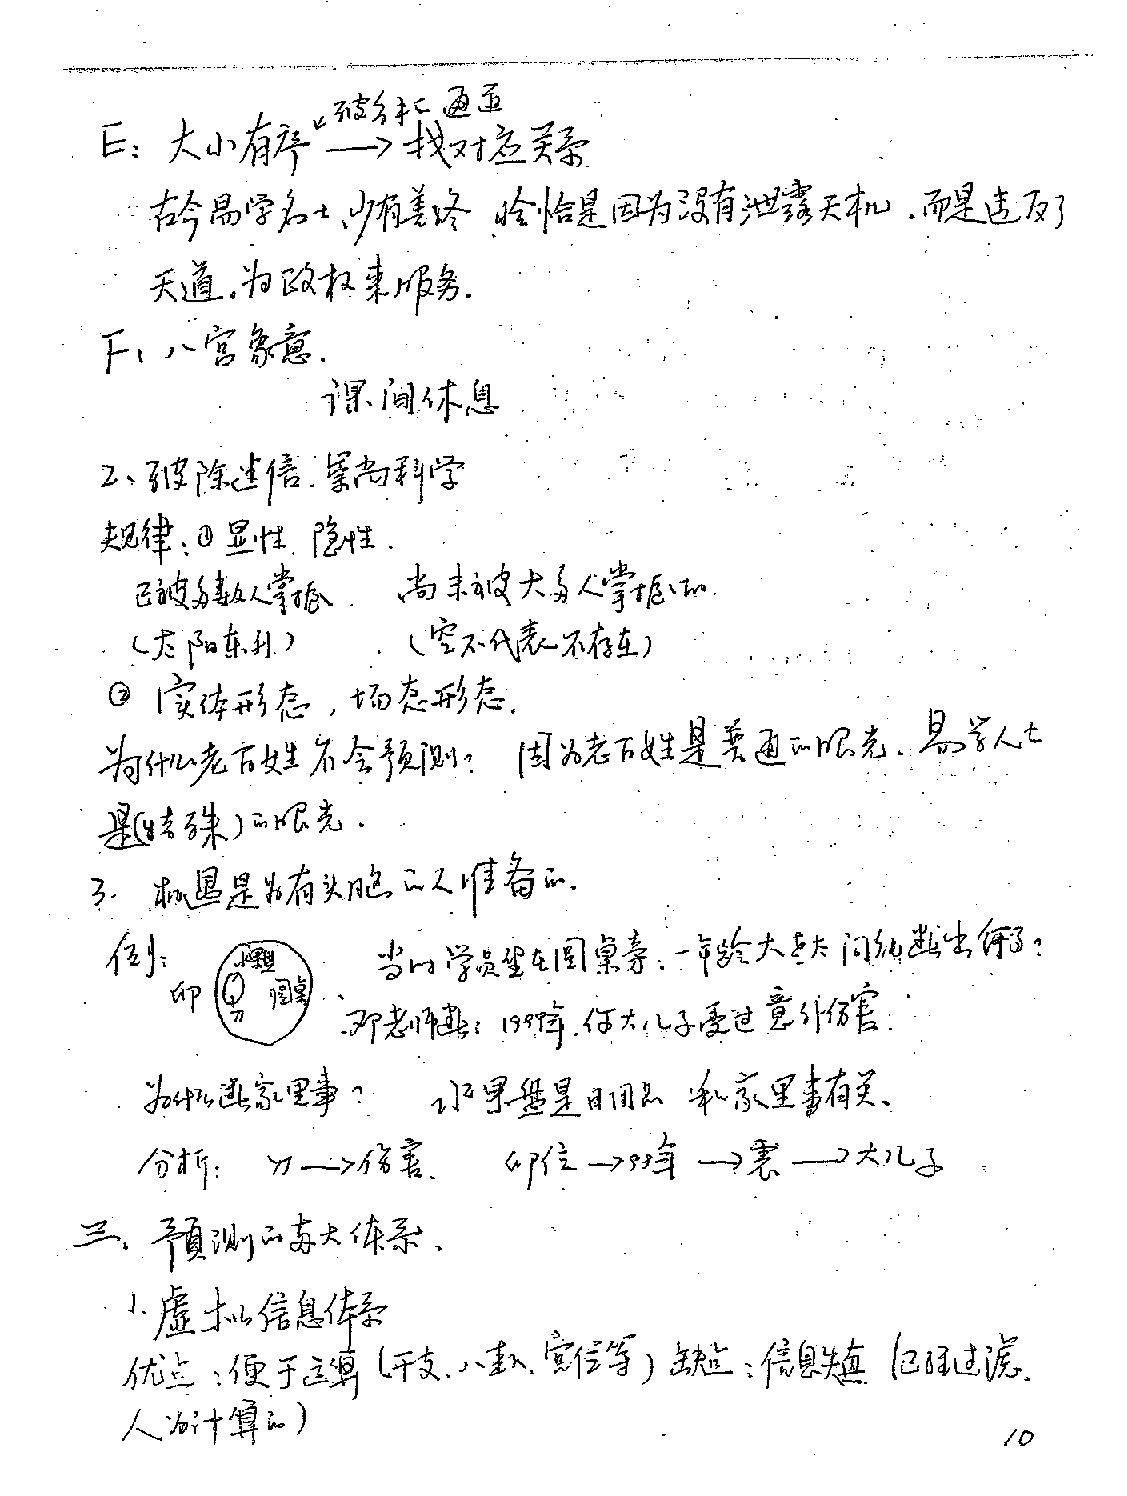 E: 大小有序 → 找对应关系
古今易学名士,少有善终 恰恰是因为没有泄露天机,而是违反了
天道,为政权来服务.
F: 八宫象意.
课间休息
2、破除迷信.崇尚科学
规律:① 显性 隐性.
已被多数人掌握. 尚未被大多人掌握的.
(太阳东升) (空不代表不存在)
② 实体形态,场态形态.
为什么老百姓不会预测? 因为老百姓是普通的眼光、易学人士
是(特殊)的眼光.
3. 机遇是为有头脑的人准备的.
例:
卯 水果盘 刀 圆桌
当时学员坐在圆桌旁:一年龄大老太问能断出何事?
邓老师断:1999年,你大儿子受过意外伤害.
为什么断家里事? 水果盘是日用品 和家里事有关、
分析: 刀→伤害. 卯位→99年→震→大儿子
三、预测的六大体系、
1. 虚拟信息体系
优点:便于运算(干支、八卦、宫位等) 缺点:信息失真(已经过滤.
人为计算的)
10